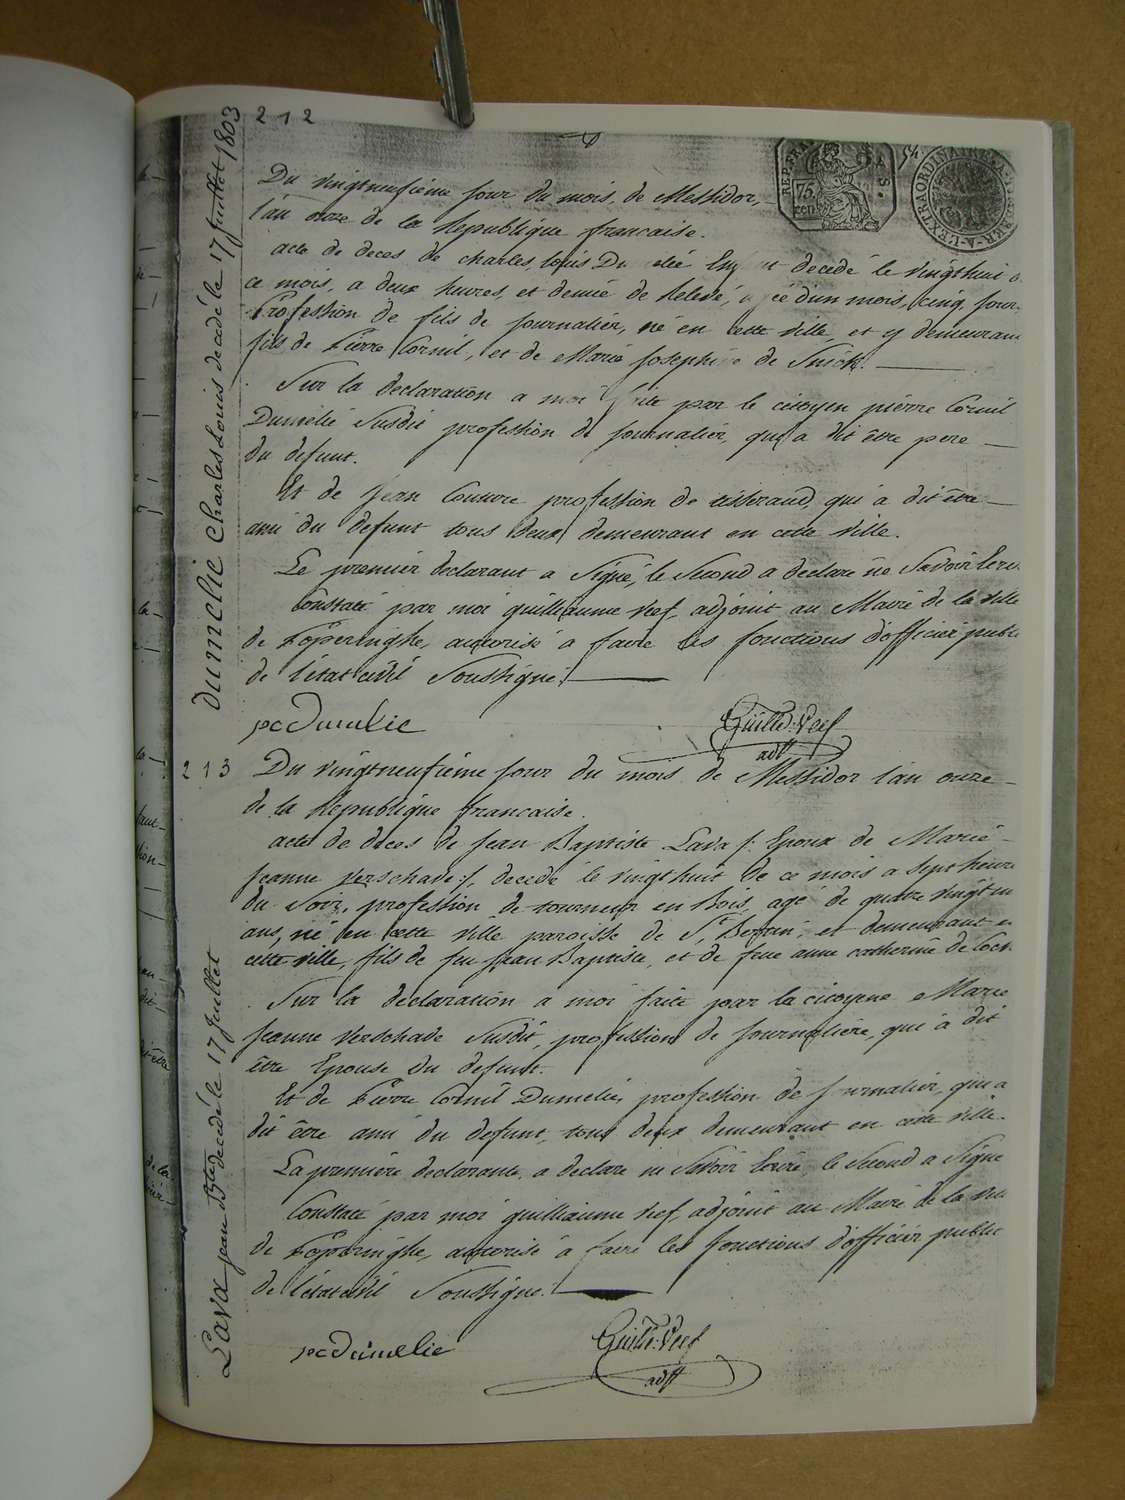 212
54
REP.FRA
75
cen
A.S.
A-L'EXTRAORDINAIRE
Du vingtneufieme jour du mois de Messidor,
l'an onze de la Republique francaise.
acte de deces de charles, louis Du elié Enf t decedé le vingthuit
ce mois, a deux heures, et demie de Relevé, agée d'un mois, cinq jour
Profession de fils de journalier, né en cette ville et y demeurant
fils de Pierre Cornil, et de Marie Josephine de Snick.
Sur la declaration a moi faite par le citoyen pierre Cornil
Dumélié Susdit profession de journalier, qui a dit être pere
du defunt.
Et de Jean Couvre profession de tisserand, qui a dit être
ami du defunt tous deux demeurant en cette ville.
Le premier declarant a Signé, le Second a declaré ne Savoir Ecrir
Constaté par moi guilliaume Veef, adjoint au Maire de la ville
de Poperinghe, autorisé a faire les fonctions d'officier public
de l'état civil Soussigné.
pc Dumelie
Guill: Veef
adjt
DUMELIE Charles Louis decedé le 17 Juillet 1803
213
Du vingtneufieme jour du mois de Messidor l'an onze
de la Republique francaise.
acte de deces de Jean Baptiste Lava /: Epoux de Marie
Jeanne Verschade :/, decedé le vingthuit de ce mois a Sept heure
du Soir, profession de tourneur en Bois, agé de quatre vingt
ans, né en cette ville paroisse de St. Bertin, et demeurant en
cette ville, fils de feu Jean Baptiste, et de feue anne catherine de
Sur la declaration a moi faite par la citoyene Marie
Jeanne Verschade Susdit, profession de journalière, qui a dit
être Epouse du defunt.
Et de Pierre Cornil Dumelié, profession de journalier, qui a
dit être ami du defunt, tous deux demeurant en cette ville.
La première declarante, a declaré ne Savoir Ecrire, le Second a Signé
Constaté par moi guilliaume Veef, adjoint au Maire de la ville
de Poperinghe, autorisé a faire les fonctions d'officier public
de l'état civil Soussigné.
pc Dumelie
Guill: Veef
adjt
Lava Jean Bte decedé le 17 Juillet